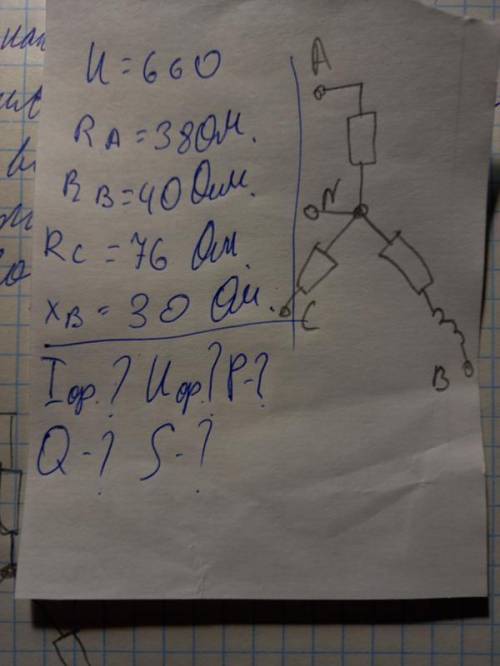 U = 660
RA = 38 Ом.
RB = 40 Ом.
RC = 76 Ом
XB = 30 Ом.
Iф.? Uф.? P-?
Q-? S-?
A
N
C
B